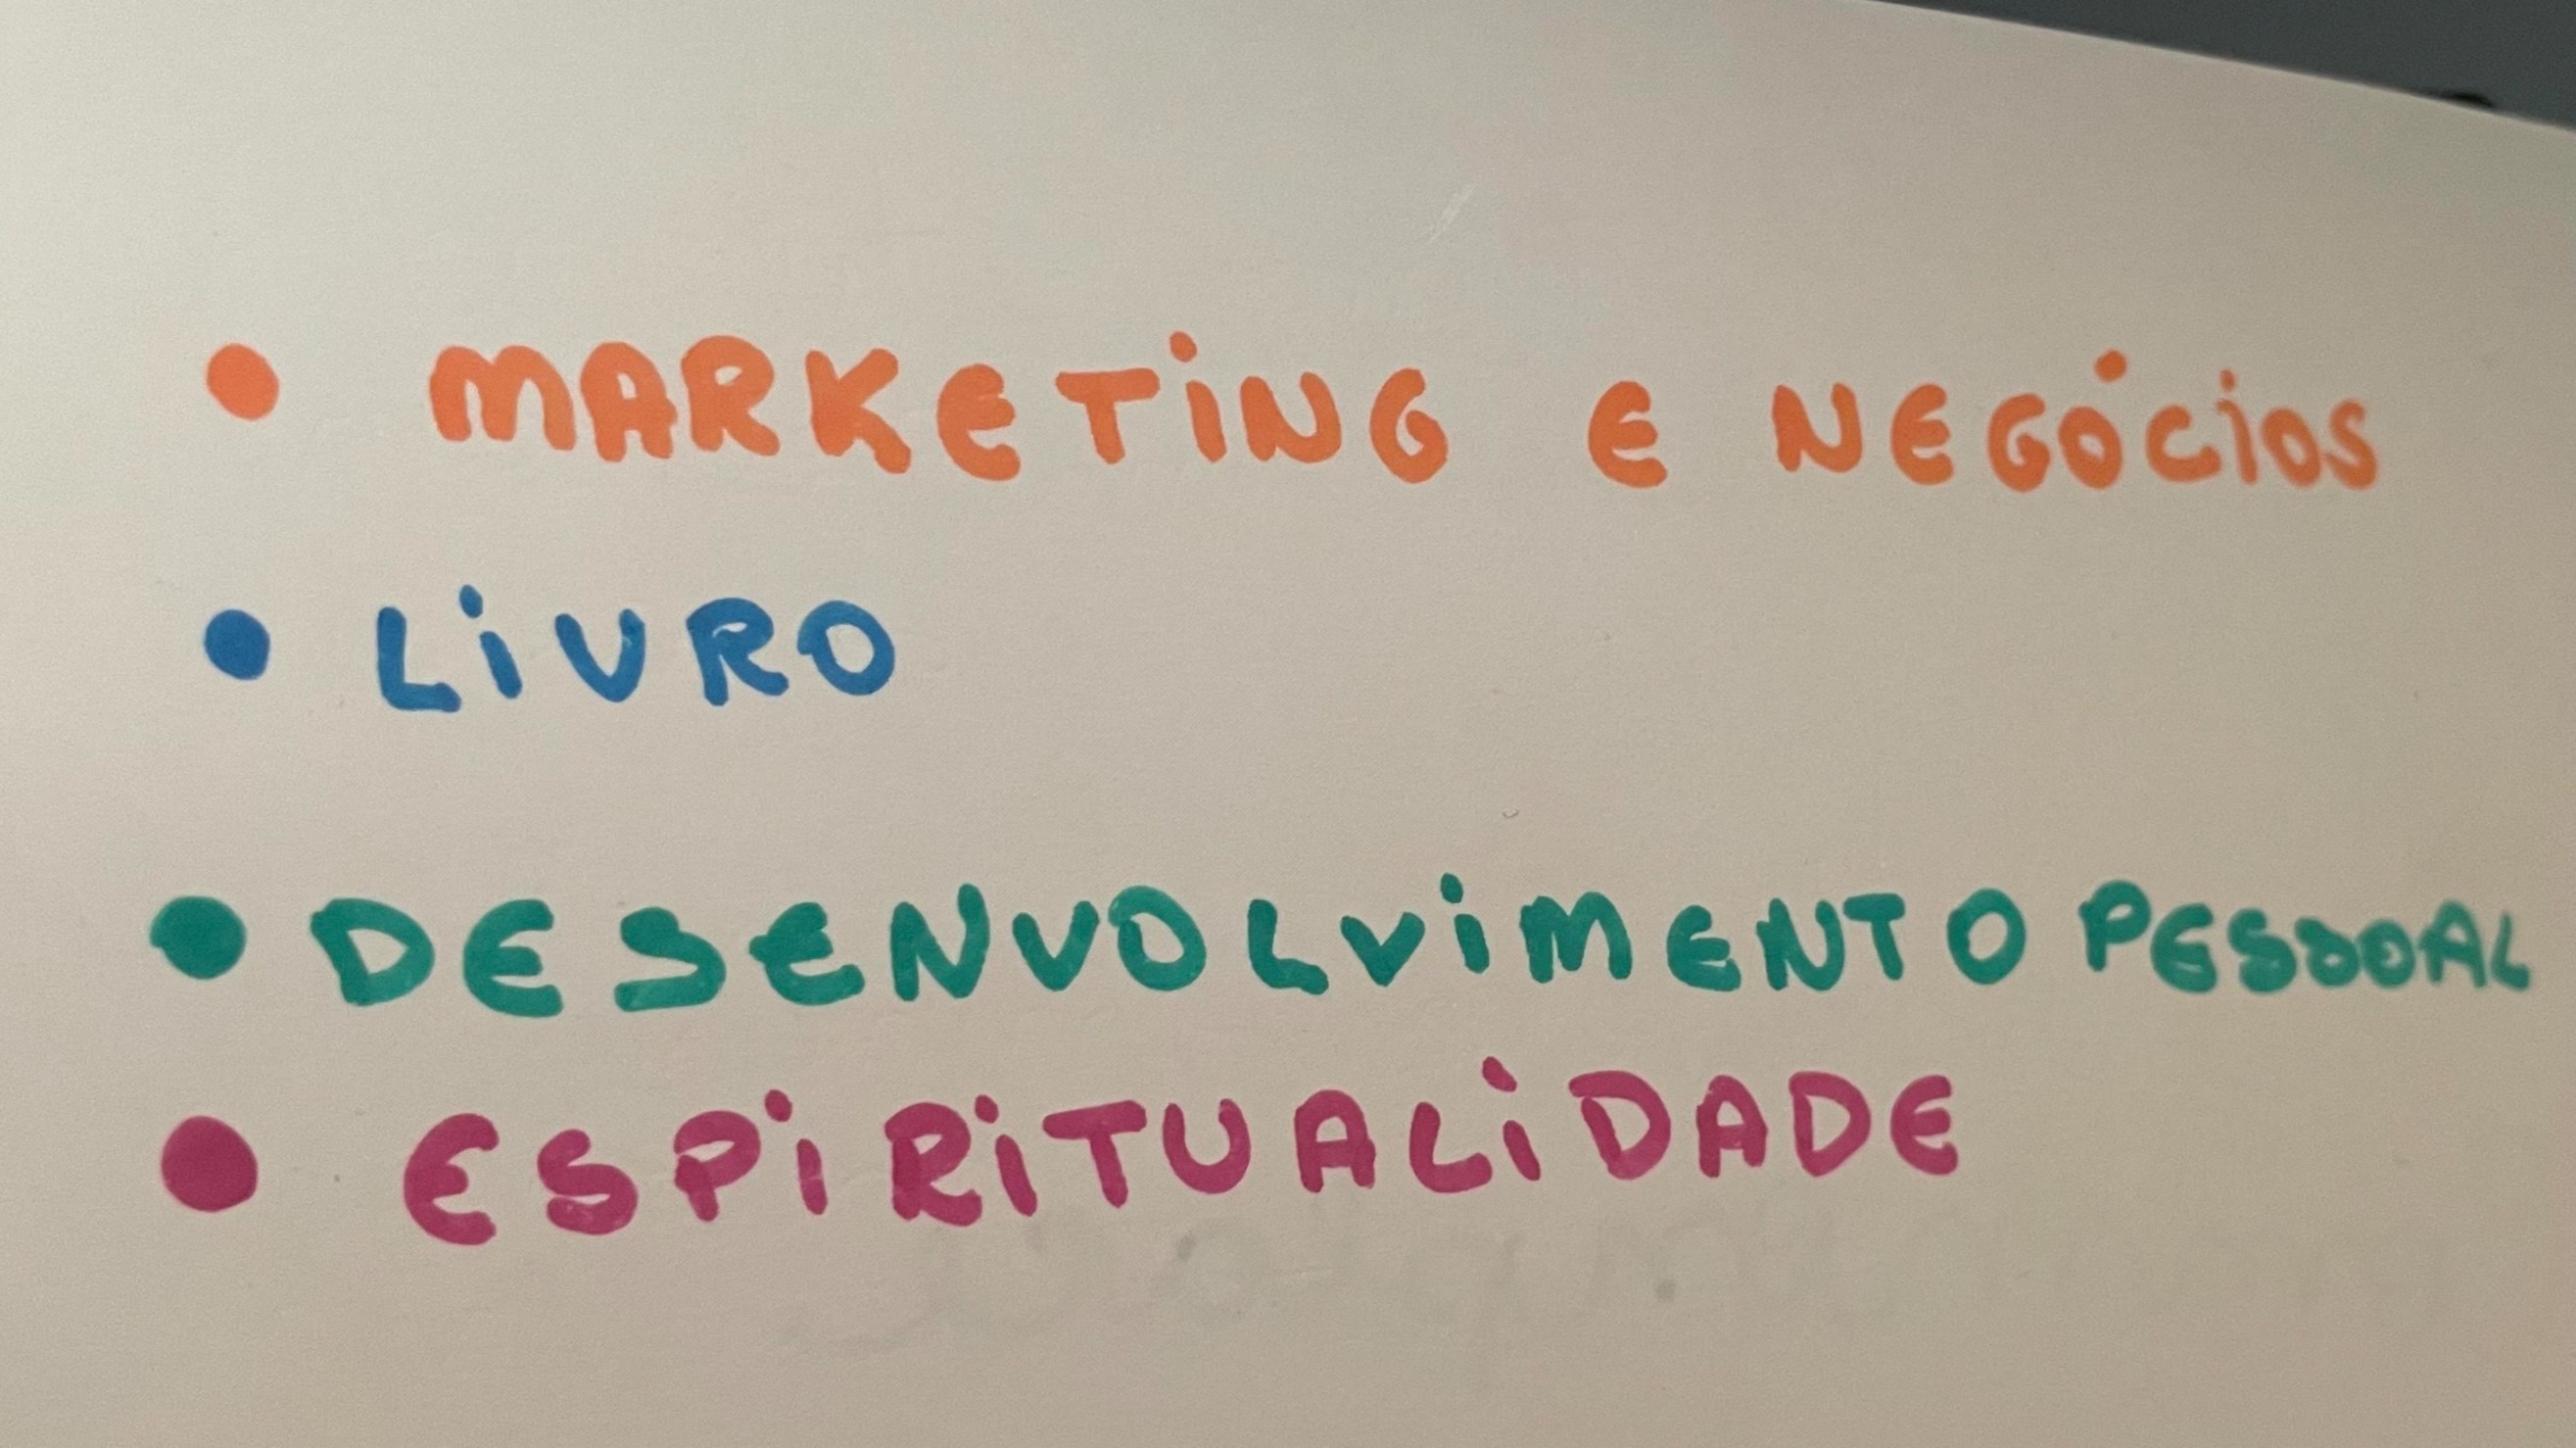 • MARKETING E NEGÓCIOS
• LIVRO
• DESENVOLVIMENTO PESSOAL
• ESPIRITUALIDADE